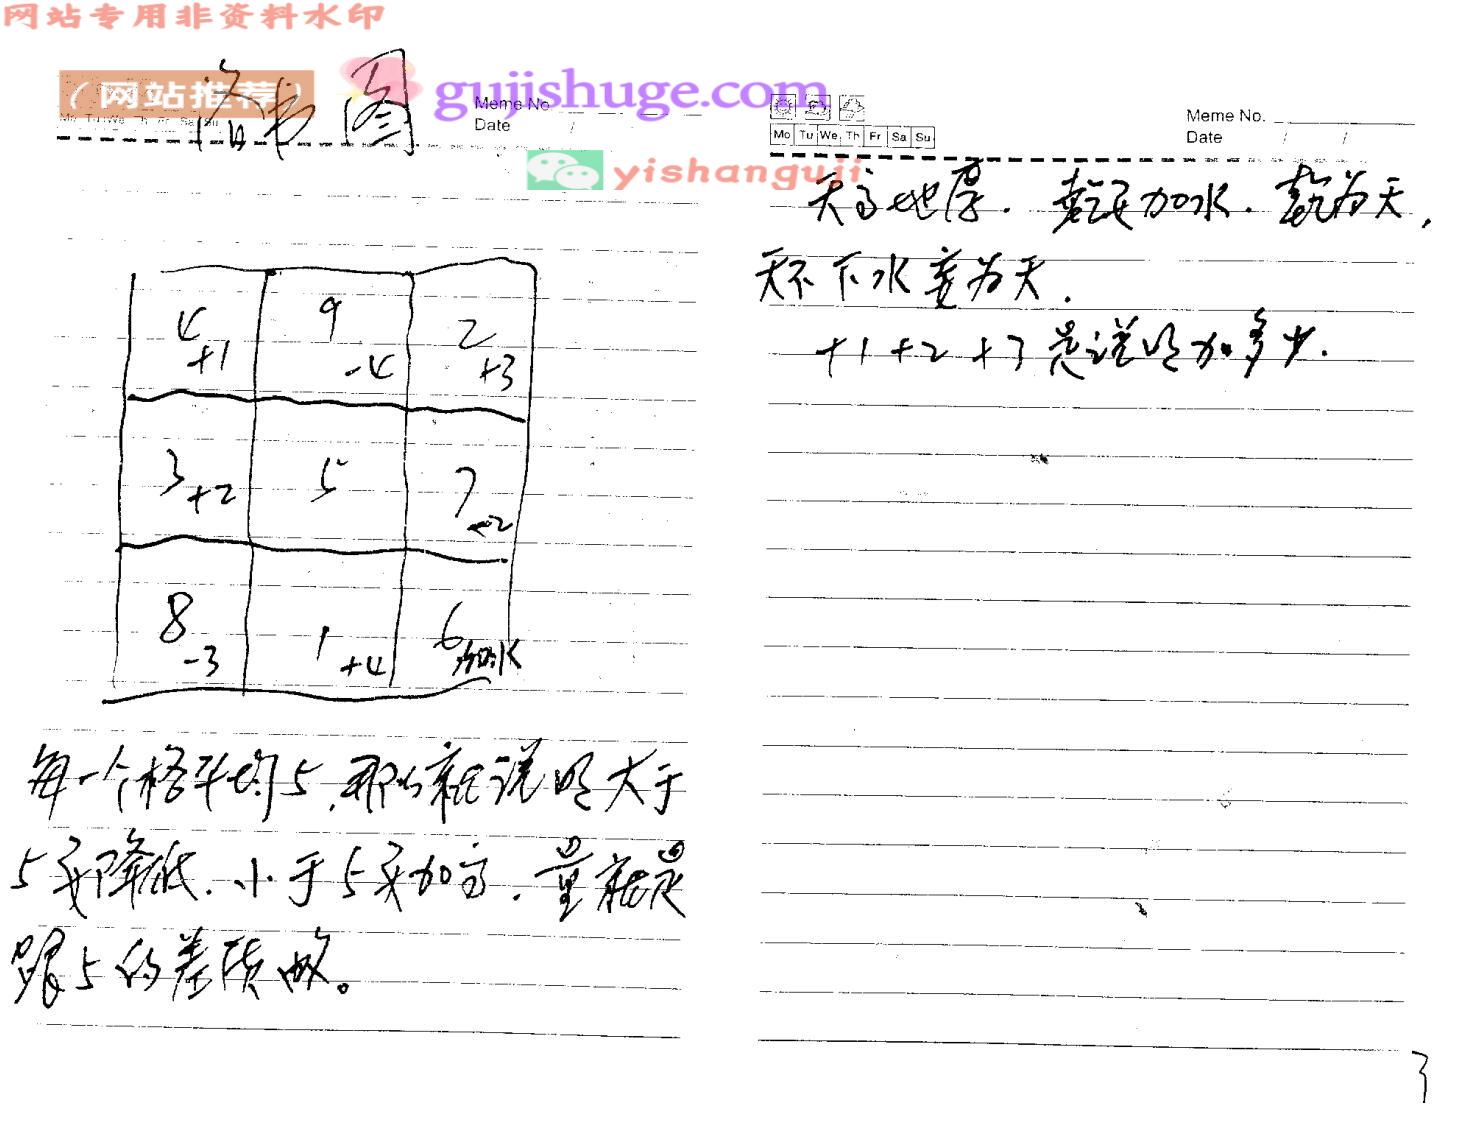 网站专用非资料水印
（网站推荐）
洛书图
gujishuge.com
yishanguji
Meme No.
Date / /
Mo Tu We Th Fr Sa Su
4 +1 9 -4 2 +3
3 +2 5 7 -2
8 -3 1 +4 6 加水
每一个格平均5，那么就说明大于
5要降低．小于5要加高．量就是
跟5的差质做。
Meme No.
Date / /
Mo Tu We Th Fr Sa Su
天高地厚．乾要加水．乾为天，
天不下水变为天．
+1+2+3是说明加多少．
3